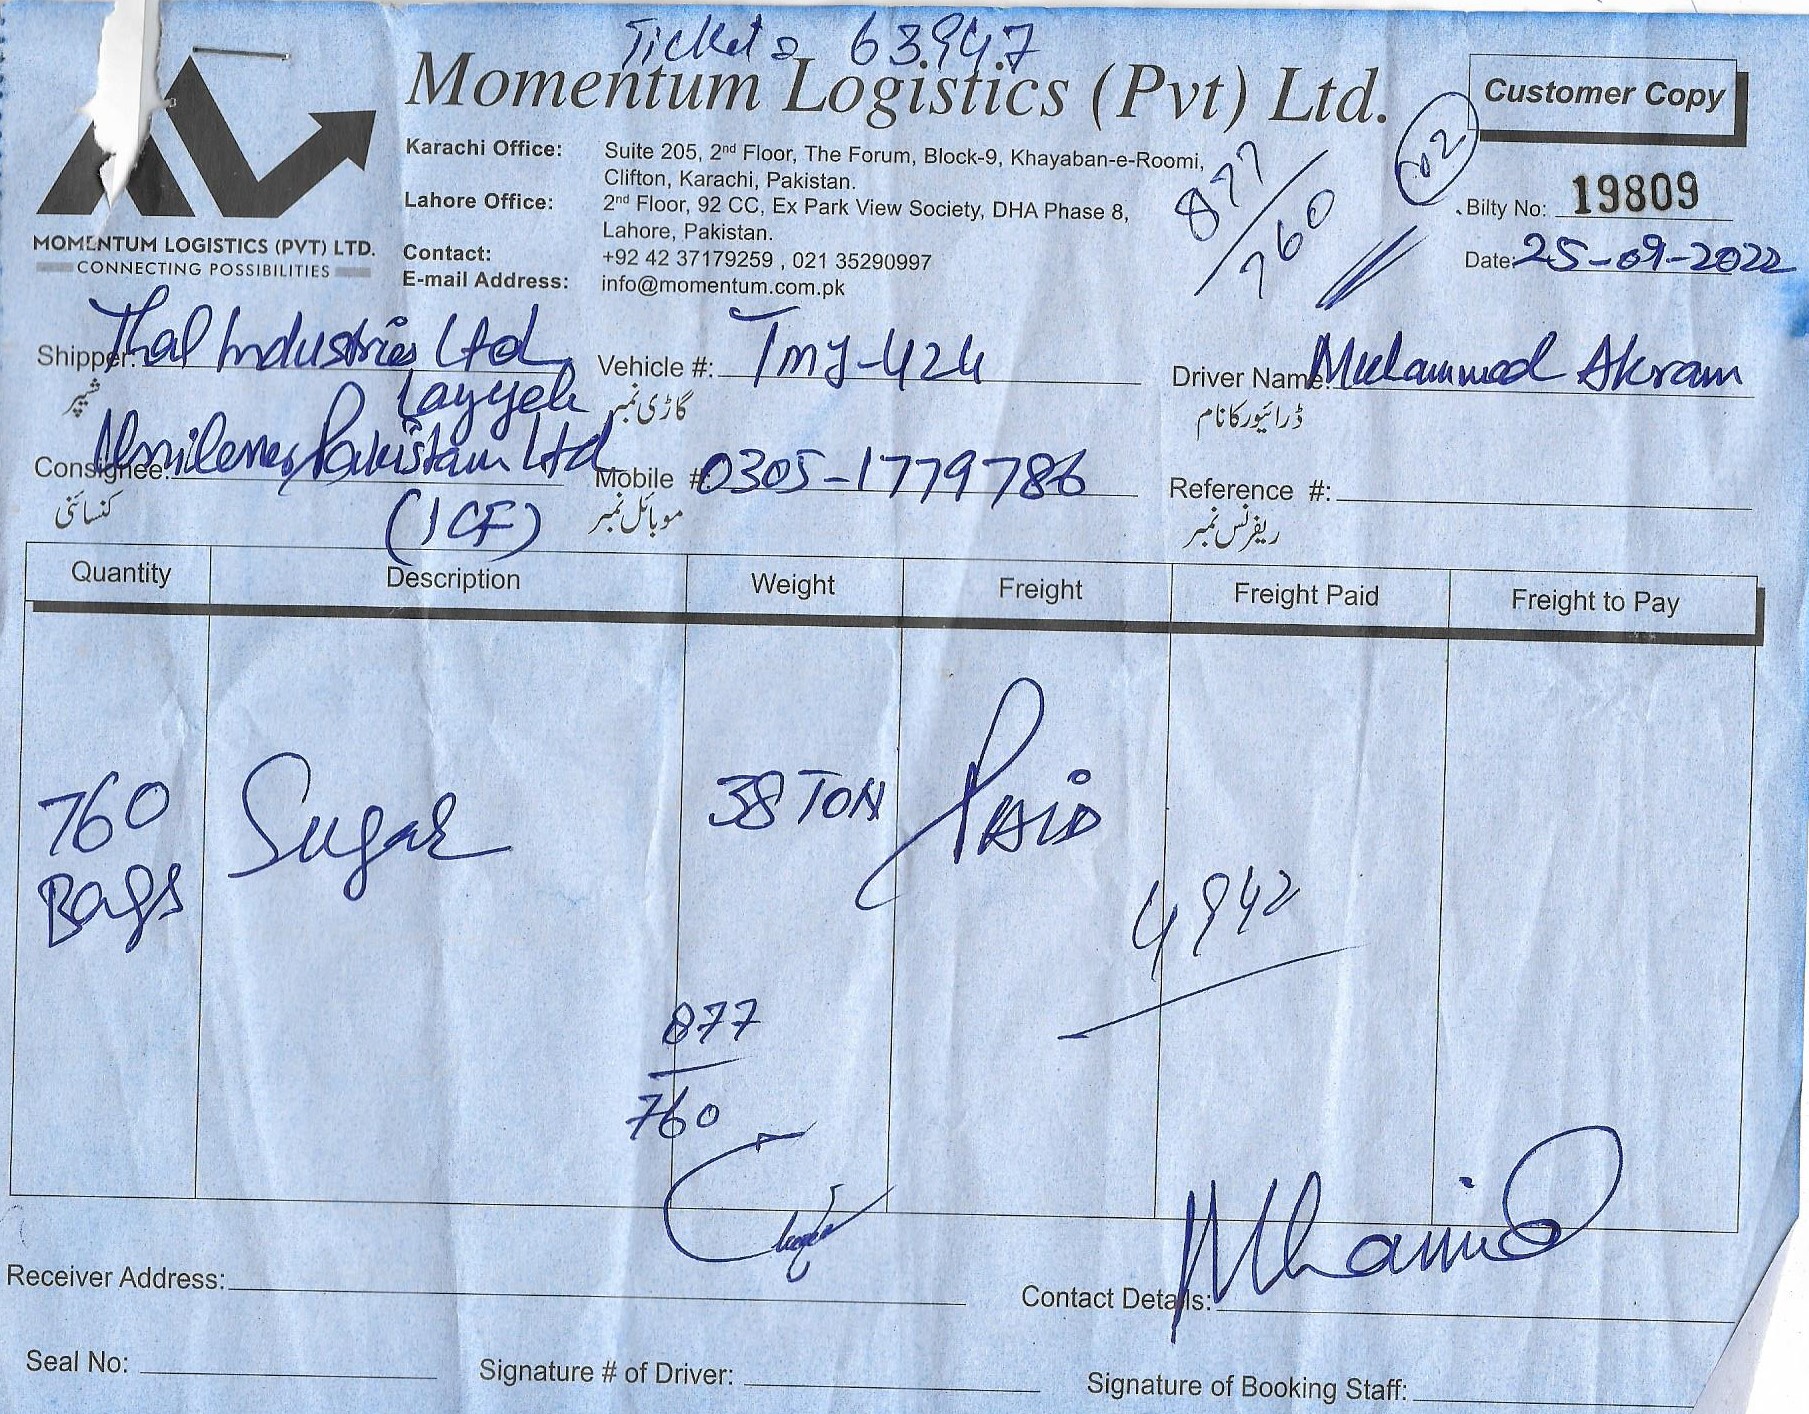 Ticket 63947
Momentum Logistics (Pvt) Ltd.
Customer Copy
MOMENTUM LOGISTICS (PVT) LTD.
CONNECTING POSSIBILITIES
Karachi Office: Suite 205, 2nd Floor, The Forum, Block-9, Khayaban-e-Roomi,
Clifton, Karachi, Pakistan.
Lahore Office: 2nd Floor, 92 CC, Ex Park View Society, DHA Phase 8,
Lahore, Pakistan.
Contact: +92 42 37179259 , 021 35290997
E-mail Address: info@momentum.com.pk
877
760
02
Bilty No: 19809
Date: 25-09-2022
Shipper: Thal Industries Ltd
Layyah
شپر
Vehicle #: TMJ-424
گاڑی نمبر
Driver Name: Muhammad Akram
ڈرائیور کا نام
Consignee: Pakistan Ltd
(ICF)
کنسائنی
Mobile #: 0305-1779786
موبائل نمبر
Reference #:
ریفرنس نمبر
Quantity Description Weight Freight Freight Paid Freight to Pay
760 Sugar 38 TON PAID
Bags
4942
877
760
Receiver Address:
Contact Details:
Seal No:
Signature # of Driver:
Signature of Booking Staff: